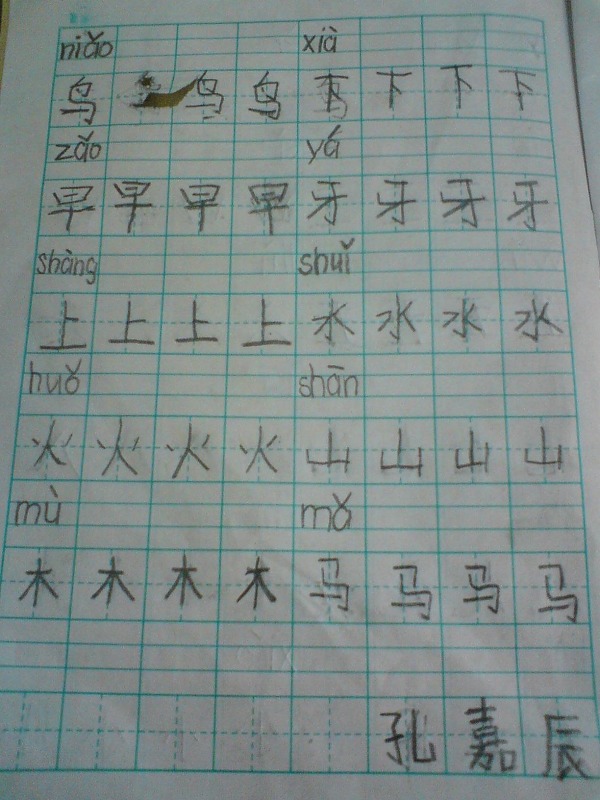 niǎo xià
鸟 鸟 鸟 下 下 下 下
zǎo yá
早 早 早 早 牙 牙 牙 牙
shàng shuǐ
上 上 上 上 水 水 水 水
huǒ shān
火 火 火 火 山 山 山 山
mù mǎ
木 木 木 木 马 马 马 马
孔 嘉 辰